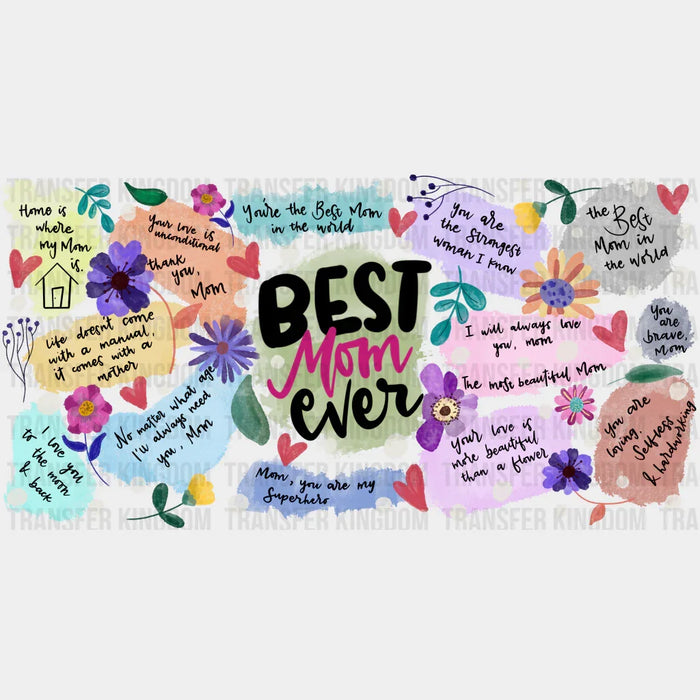 Home is
where
my Mom
is.
Your love is
unconditional
thank
you,
Mom
You're the Best Mom
in the world
You are
the Strongest
woman I know
the
Best
Mom in
the world
Life doesn't come
with a manual,
it comes with a
mother
BEST
Mom
ever
I will always love
you, mom
You are
brave,
Mom
The most beautiful Mom
I love you
to the moon
& back
No matter what age
I'll always need
you, Mom
Mom, you are my
Superhero
Your love is
more beautiful
than a flower
You are
loving,
Selfless
& hardworking
TRANSFER KINGDOM